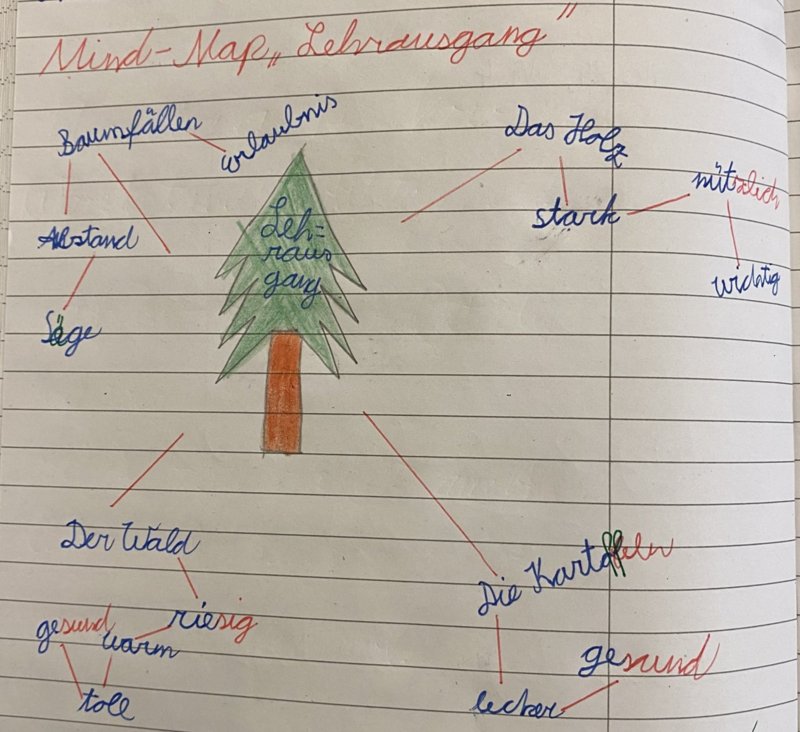 Mind-Map „Lehrausgang"
Baumfällen
Urlaubnis
Abstand
Säge
Leh=
raus
gang
Das Holz
stark
nützlich
wichtig
Der Wald
riesig
warm
gesund
toll
Die Kartoffeln
lecker
gesund